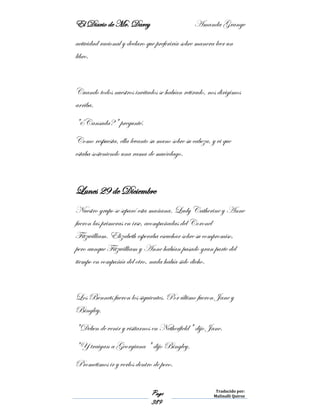 El Diario de Mr. Darcy Amanda Grange
actividad racional y declaro que preferiría sobre manera leer un
libro.
Cuando todos nuestros invitados se habían retirado, nos dirigimos
arriba.
"¿Cansada?" pregunté.
Como respuesta, ella levanto su mano sobre su cabeza, y vi que
estaba sosteniendo una rama de muérdago.
Lunes 29 de Diciembre
Nuestro grupo se separó esta mañana. Lady Catherine y Anne
fueron las primeras en irse, acompañadas del Coronel
Fitzwilliam. Elizabeth esperaba escuchar sobre su compromiso,
pero aunque Fitzwilliam y Anne habían pasado gran parte del
tiempo en compañía del otro, nada había sido dicho.
Los Bennets fueron los siguientes. Por último fueron, Jane y
Bingley.
"Deben de venir y visitarnos en Netherfield" dijo, Jane.
"Y traigan a Georgiana " dijo Bingley.
Prometimos ir y verlos dentro de poco.
Page
389
Traducido por:
Malinalli Quiroz